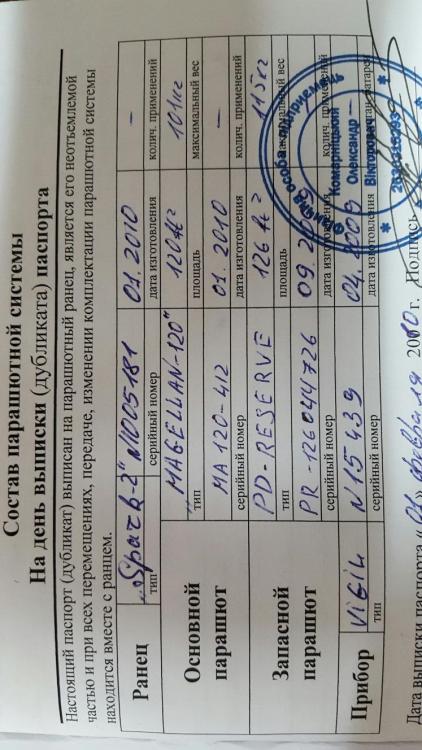 Состав парашютной системы
На день выписки (дубликата) паспорта
Настоящий паспорт (дубликат) выписан на парашютный ранец, является его неотъемлемой
частью и при всех перемещениях, передаче, изменении комплектации парашютной системы
находится вместе с ранцем.
Ранец „Spark-2" N005181 01.2010 —
тип серийный номер дата изготовления колич. применений
Основной парашют „MAGELLAN-120" 120 ft² 101 кг
тип площадь максимальный вес
MA120-412 01.2010 —
серийный номер дата изготовления колич. применений
Запасной парашют PD-RESERVE 126 ft² 115 кг
тип площадь максимальный вес
PR-126044726 09.2009
серийный номер дата изготовления колич. применений
Прибор VIGIL N15439 04.2009 —
тип серийный номер дата изготовления
Фізична особа-підприємець
Комерницький
Олександр
Вікторович
Дата выписки паспорта «01» февраля 2010 г. Подпись